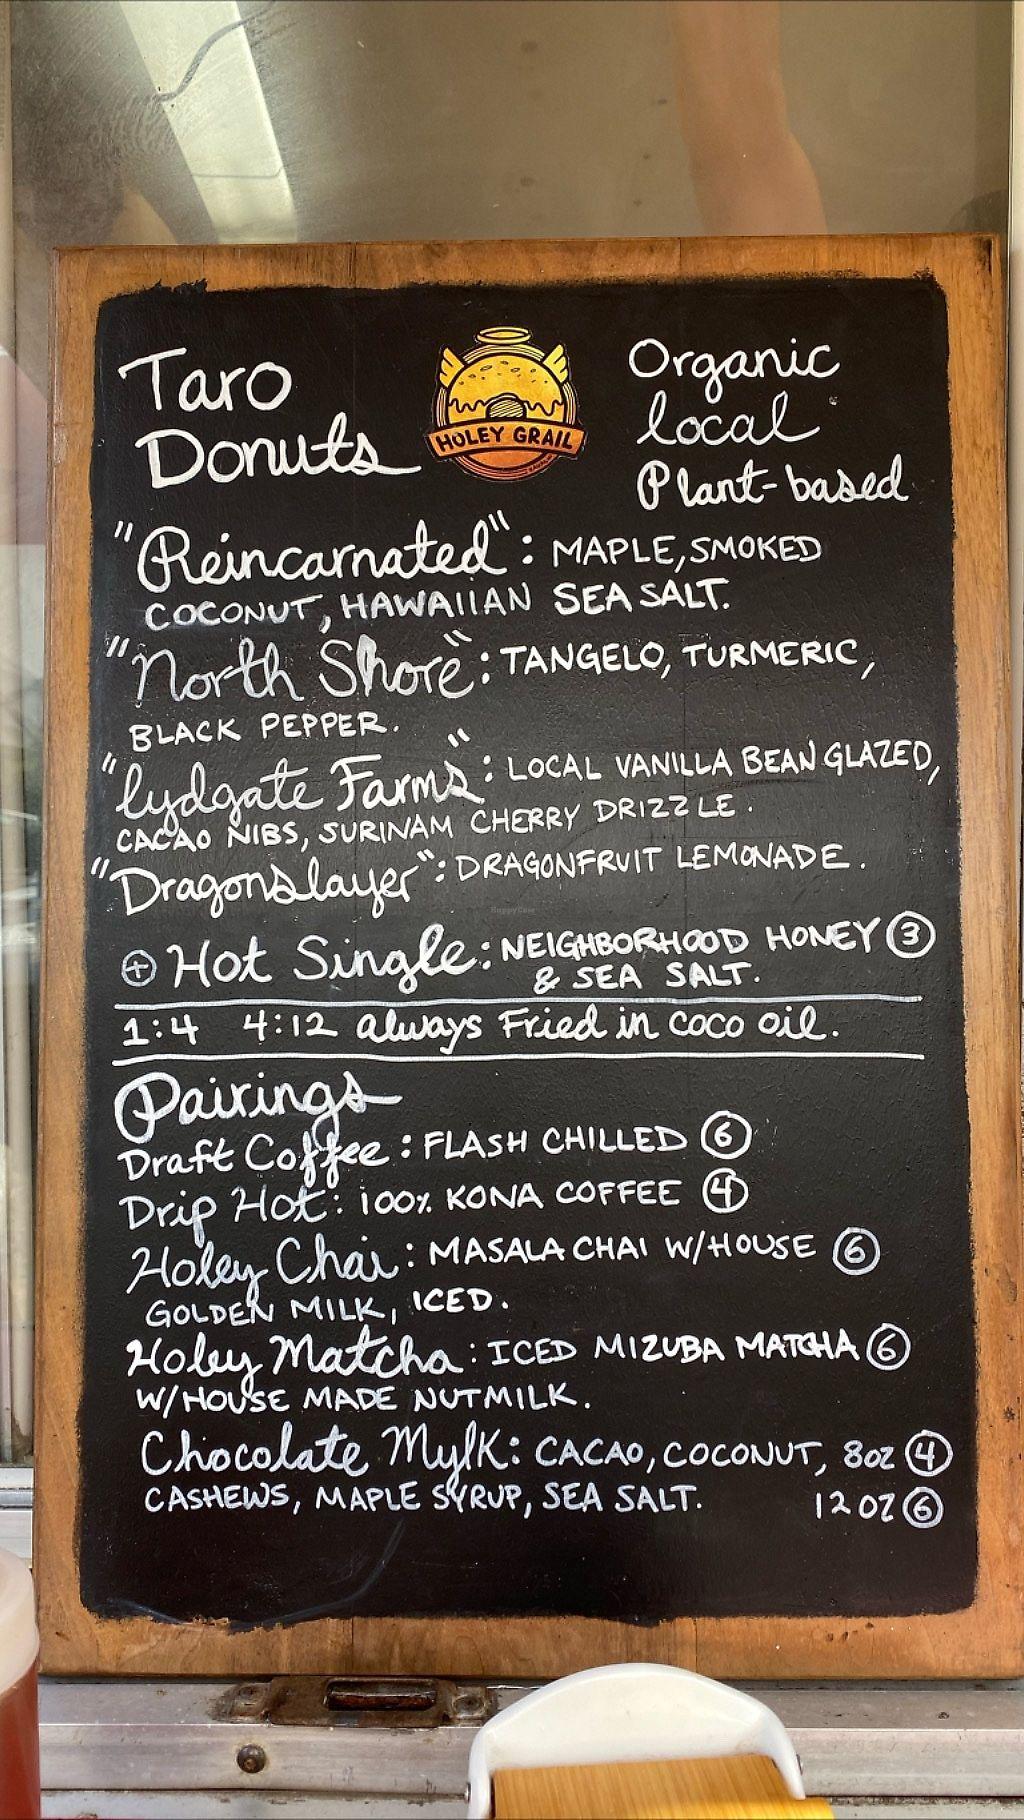 Taro
Donuts
HOLEY GRAIL
Organic
local
Plant-based
"Reincarnated": MAPLE, SMOKED
COCONUT, HAWAIIAN SEA SALT.
"North Shore": TANGELO, TURMERIC,
BLACK PEPPER.
"lydgate Farms": LOCAL VANILLA BEAN GLAZED,
CACAO NIBS, SURINAM CHERRY DRIZZLE.
"Dragonslayer": DRAGONFRUIT LEMONADE.
+ Hot Single: NEIGHBORHOOD HONEY 3
& SEA SALT.
1:4 4:12 always Fried in coco oil.
Pairings
Draft Coffee: FLASH CHILLED 6
Drip Hot: 100% KONA COFFEE 4
Holey Chai: MASALA CHAI W/HOUSE 6
GOLDEN MILK, ICED.
Holey Matcha: ICED MIZUBA MATCHA 6
W/HOUSE MADE NUTMILK.
Chocolate Mylk: CACAO, COCONUT, 8oz 4
CASHEWS, MAPLE SYRUP, SEA SALT. 12oz 6